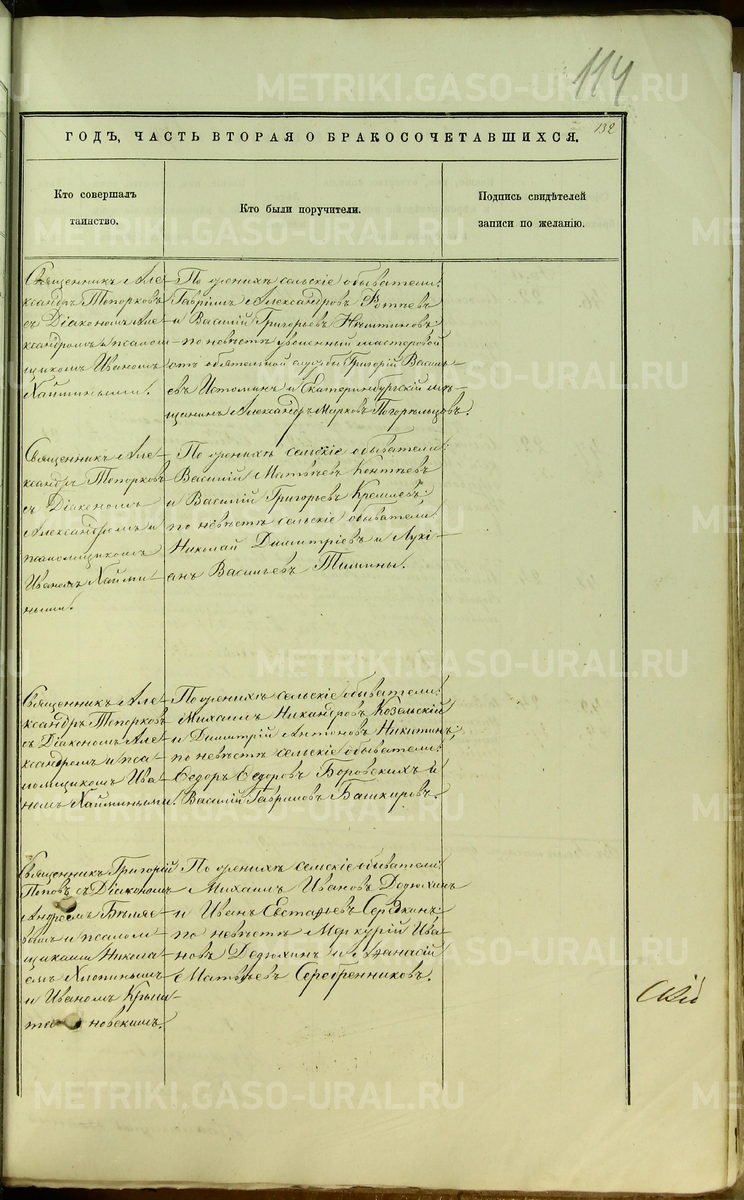 114
ГОДЪ, ЧАСТЬ ВТОРАЯ О БРАКОСОЧЕТАВШИХСЯ.
132
Кто совершалъ
таинство.
Кто были поручители.
Подпись свидѣтелей
записи по желанію.
Священникъ Але-
ксандръ Топорковъ
съ Діакономъ Але-
ксандромъ и псалом-
щикомъ Иваномъ
Хаймиными.
По женихѣ сельскіе обыватели:
Гавріилъ Александровъ
и Василій Григорьевъ
по невѣстѣ уволенный мастеровой
отъ обязательной службы Григорій Василь-
евъ Истоминъ и Екатеринбургскій мѣ-
щанинъ Александръ Марковъ Погорѣльцовъ.
Священникъ Але-
ксандръ Топорковъ
съ Діакономъ
Александромъ и
псаломщикомъ
Иваномъ Хайми-
ными.
По женихѣ сельскіе обыватели:
Василій Матвѣевъ
и Василій Григорьевъ
по невѣстѣ сельскіе обыватели:
Николай Димитріевъ и Лукі-
анъ Васильевъ Тимины.
Священникъ Але-
ксандръ Топорковъ
съ Діакономъ Але-
ксандромъ и пса-
ломщикомъ Ива-
номъ Хаймиными.
По женихѣ сельскіе обыватели:
Михаилъ Никандровъ Козельскій
и Димитрій Антоновъ Никитинъ;
по невѣстѣ сельскіе обыватели:
Ѳедоръ Ѳедоровъ Боровскихъ и
Василій Гавриловъ Башкировъ.
Священникъ Григорій
Поповъ съ Діакономъ
Андреемъ Бѣляе-
вымъ и псалом-
щиками Никола-
емъ Хлопинымъ
и Иваномъ Крыш-
новскимъ.
По женихѣ сельскіе обыватели:
Михаилъ Ивановъ Дедюхинъ
и Иванъ Евстафьевъ Середкинъ;
по невѣстѣ Меркурій Ива-
новъ Дедюхинъ и Аѳанасій
Матвѣевъ Серебренниковъ.
METRIKI.GASO-URAL.RU
METRIKI.GASO-URAL.RU
METRIKI.GASO-URAL.RU
METRIKI.GASO-URAL.RU
METRIKI.GASO-URAL.RU
METRIKI.GASO-URAL.RU
METRIKI.GASO-URAL.RU
METRIKI.GASO-URAL.RU